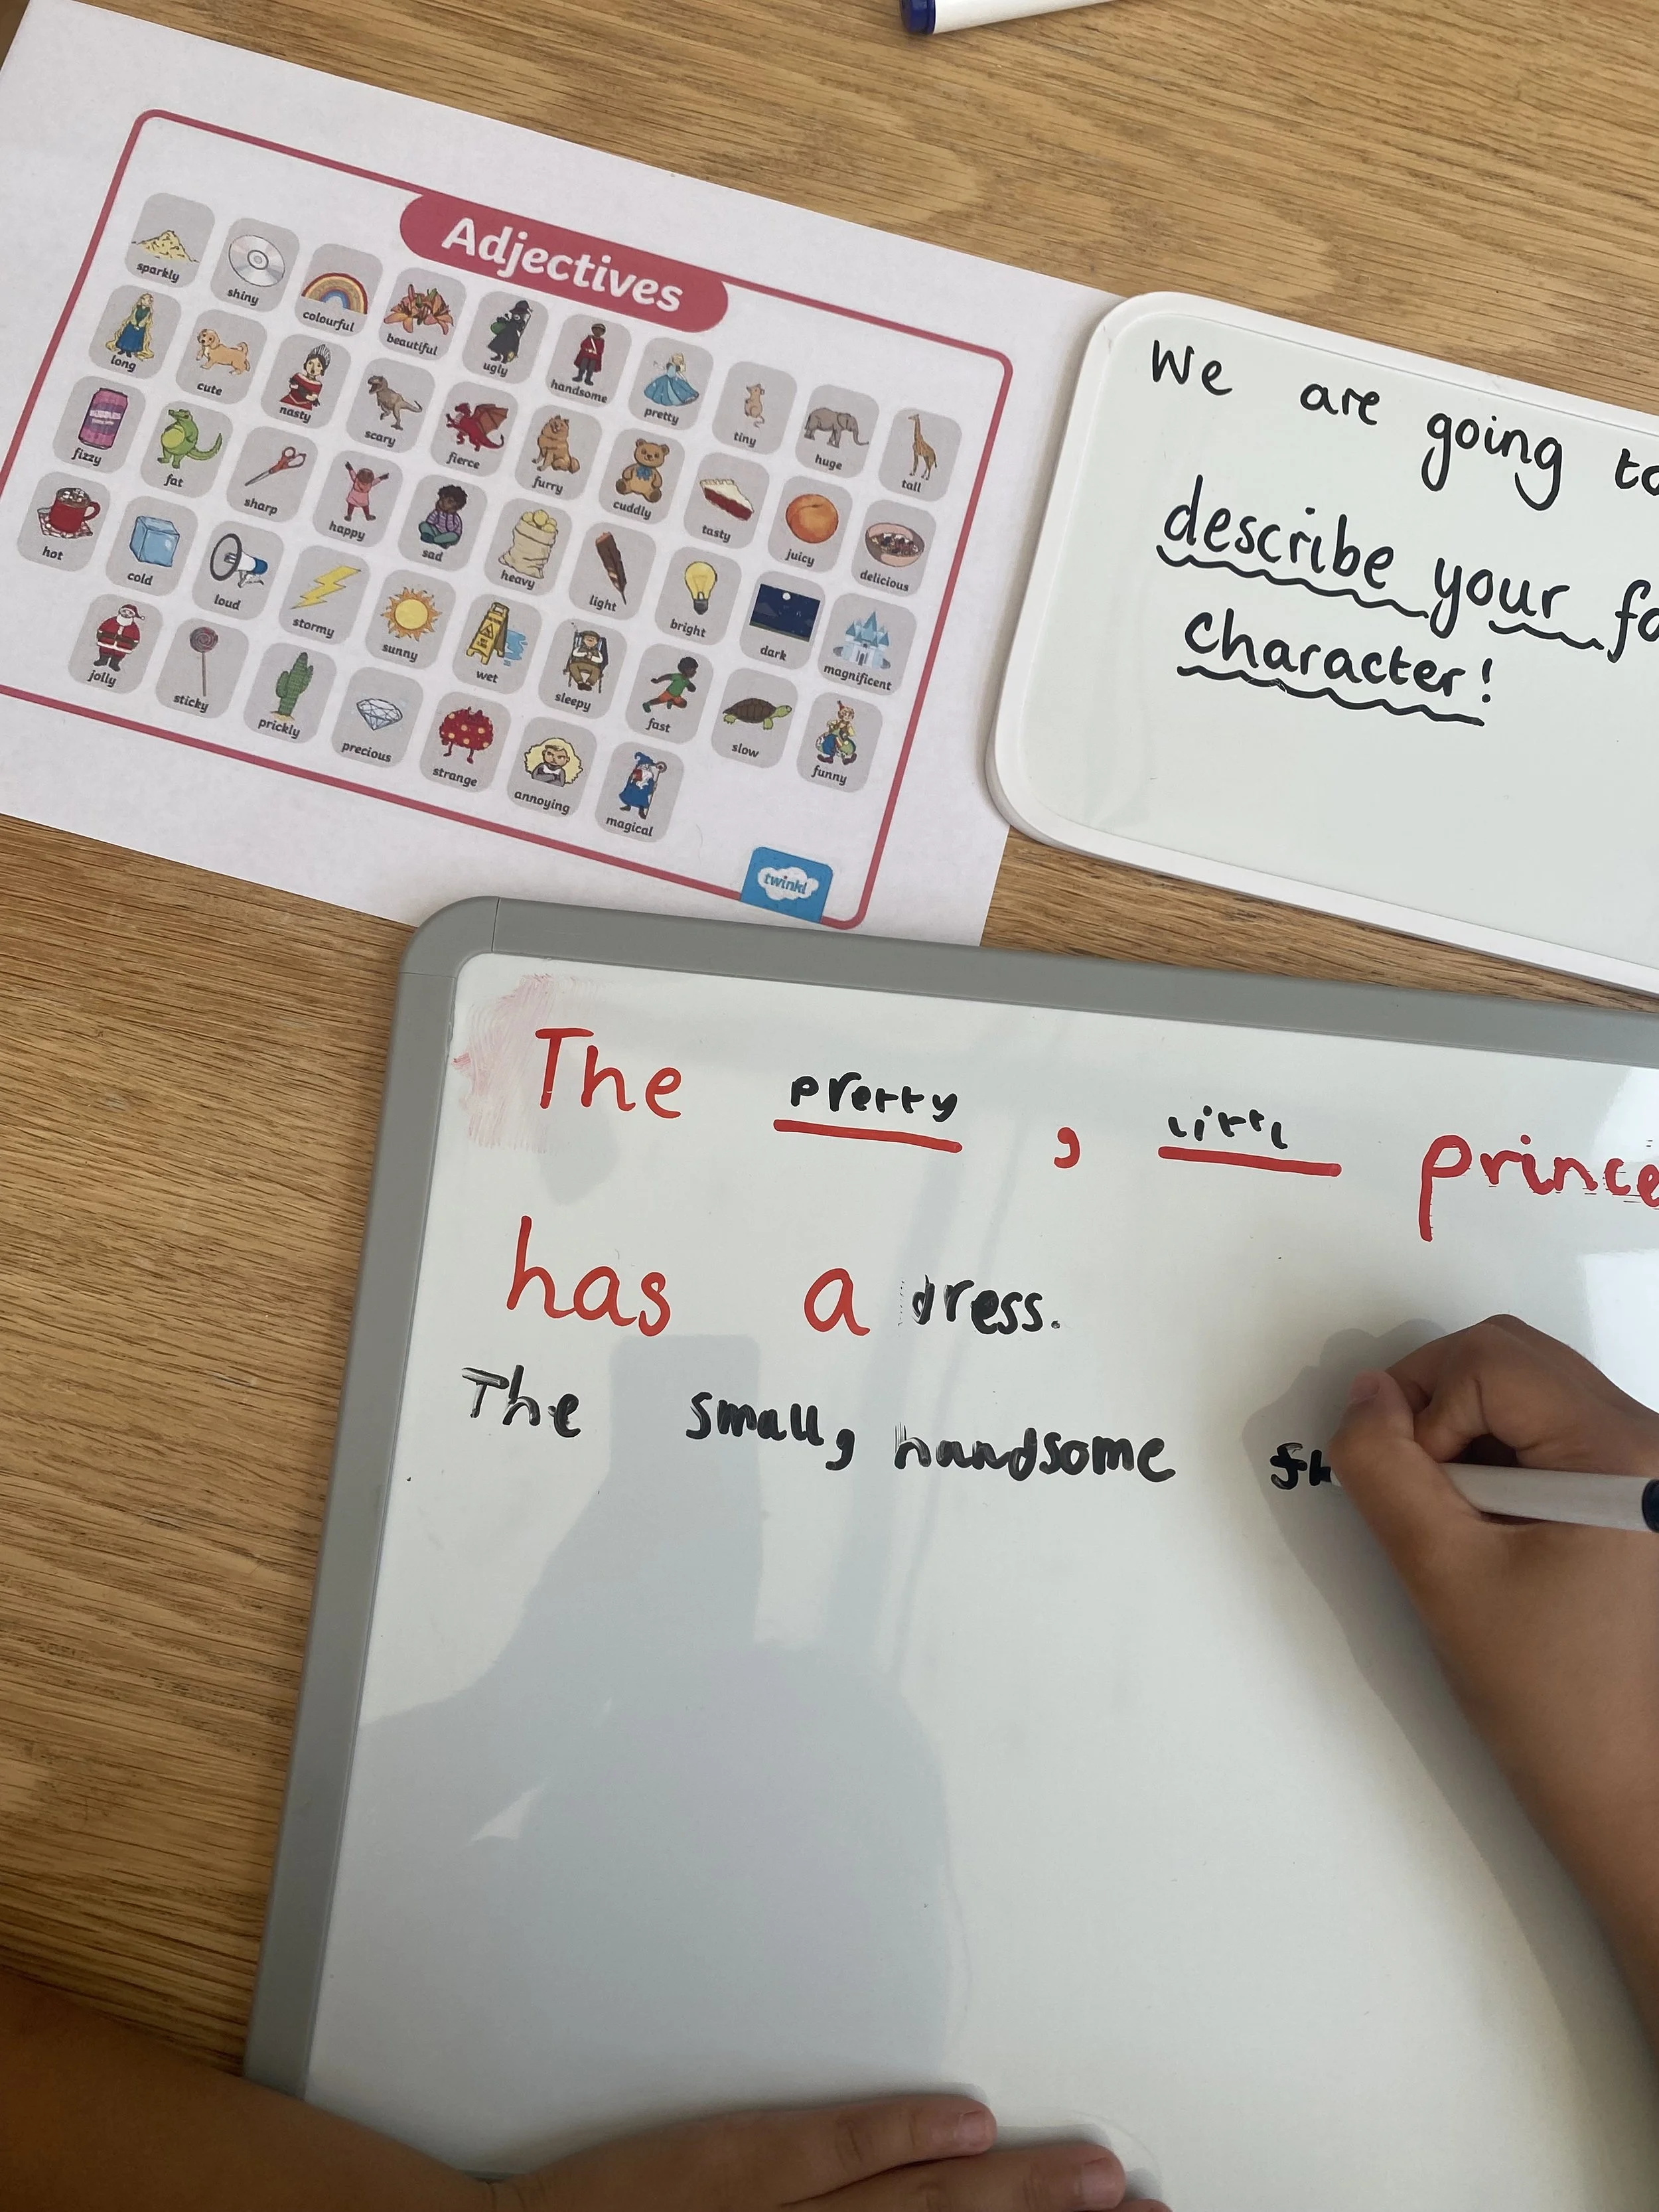 Adjectives
sparkly shiny colourful beautiful ugly handsome pretty tiny huge tall
long cute nasty scary fierce furry cuddly tasty juicy delicious
fizzy fat sharp happy sad heavy light bright dark magnificent
hot cold loud stormy sunny wet sleepy fast slow funny
jolly sticky prickly precious strange annoying magical
twinkl
We are going to
describe your fa
character!
The pretty , littl prince
has a dress.
The small, handsome